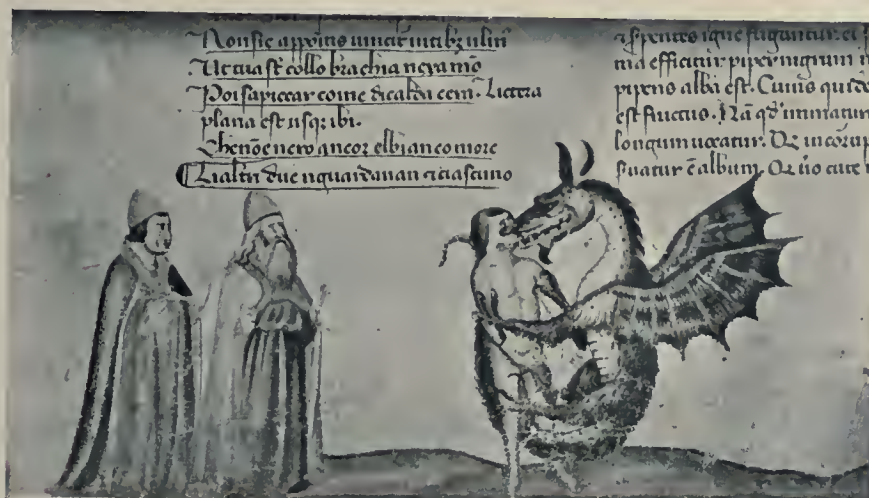 Non sic appoitis uincit uitibz ulm
Ut tua st collo brachia nexa mō
Poi sapiccar come di calda cera. Lictera
plana est usqz ibi.
Chenōe nero ancor elbianco more
Lialtri due riguardavan ciascuno
& spentes igne fugantur. et
ma efficitur piper nigrum
piperis alba est. Cuius quidē
est fructus. Nā qd' inmatur
longum uocatur. Qz incorup
suatur ē album. Qz uo cute